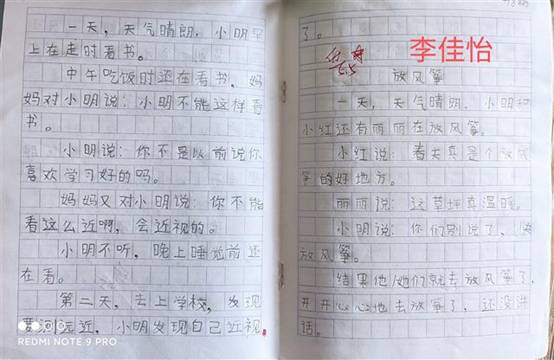 一天，天气晴朗，小明早
上在走时看书。
中午吃饭时还在看书，妈
妈对小明说：小明不能这样看
书。
小明说：你不是以前说你
喜欢学习好的吗。
妈妈又对小明说：你不能
看这么近啊，会近视的。
小明不听，晚上睡觉前还
在看。
第二天，去上学校，发现
远近，小明发现自己近视
REDMI NOTE 9 PRO
了。
李佳怡
放风筝
一天，天气晴朗，小明和
小红还有丽丽在放风筝。
小红说：春天真是个放风
筝的好地方。
丽丽说：这草坪真温暖。
小明说：你们别说了，
放风筝。
结果他/她们就去放风筝了，
开开心心地去放筝了，还没讲
话。